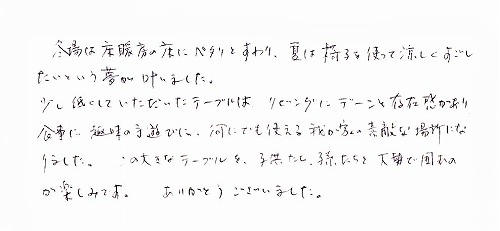 冬場は床暖房の床にペタリとすわり、夏は椅子を使って涼しくすごし
たいという夢が叶いました。
少し低くしていただいたテーブルは、リビングにデーンと存在感があり
食事に趣味の手遊びに、何にでも使える我が家の素敵な場所にな
りました。 この大きなテーブルを、子供たち、孫たちと大勢で囲むの
が楽しみです。 ありがとうございました。